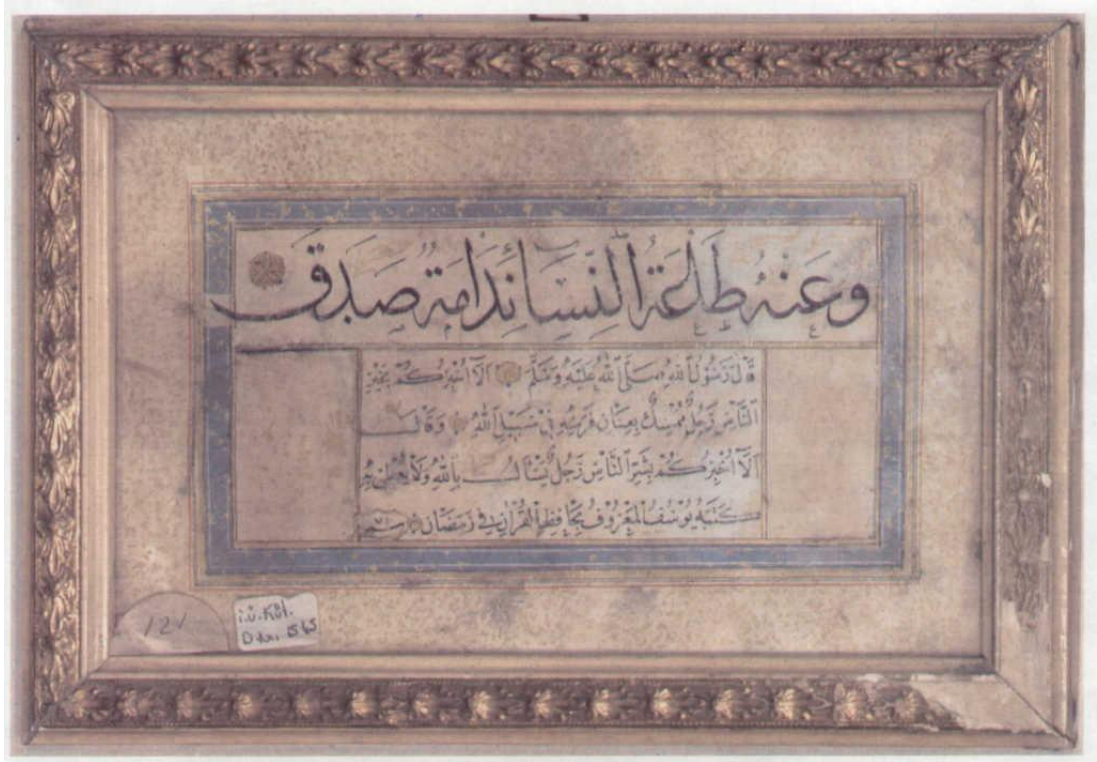 وَعَنْهُ طَاعَةُ النِّسَائِ نَدَامَةٌ صَدَقَ
قَالَ رَسُولُ اللهِ صَلَّى اللهُ عَلَيْهِ وَسَلَّمَ اَلَا اُخْبِرُكُمْ بِخَيْرِ
النَّاسِ رَجُلٌ مُمْسِكٌ بِعِنَانِ فَرَسِهِ فِي سَبِيلِ اللهِ وَقَالَ
اَلَا اُخْبِرُكُمْ بِشَرِّ النَّاسِ رَجُلٌ يُسْأَلُ بِاللهِ وَلَا يُعْطِي
كَتَبَهُ يُوسُفُ الْمَعْرُوفُ بِحَافِظِ الْقُرْاٰنِ فِي رَمَضَانَ
١٢٧
İ.Ü. Küt.